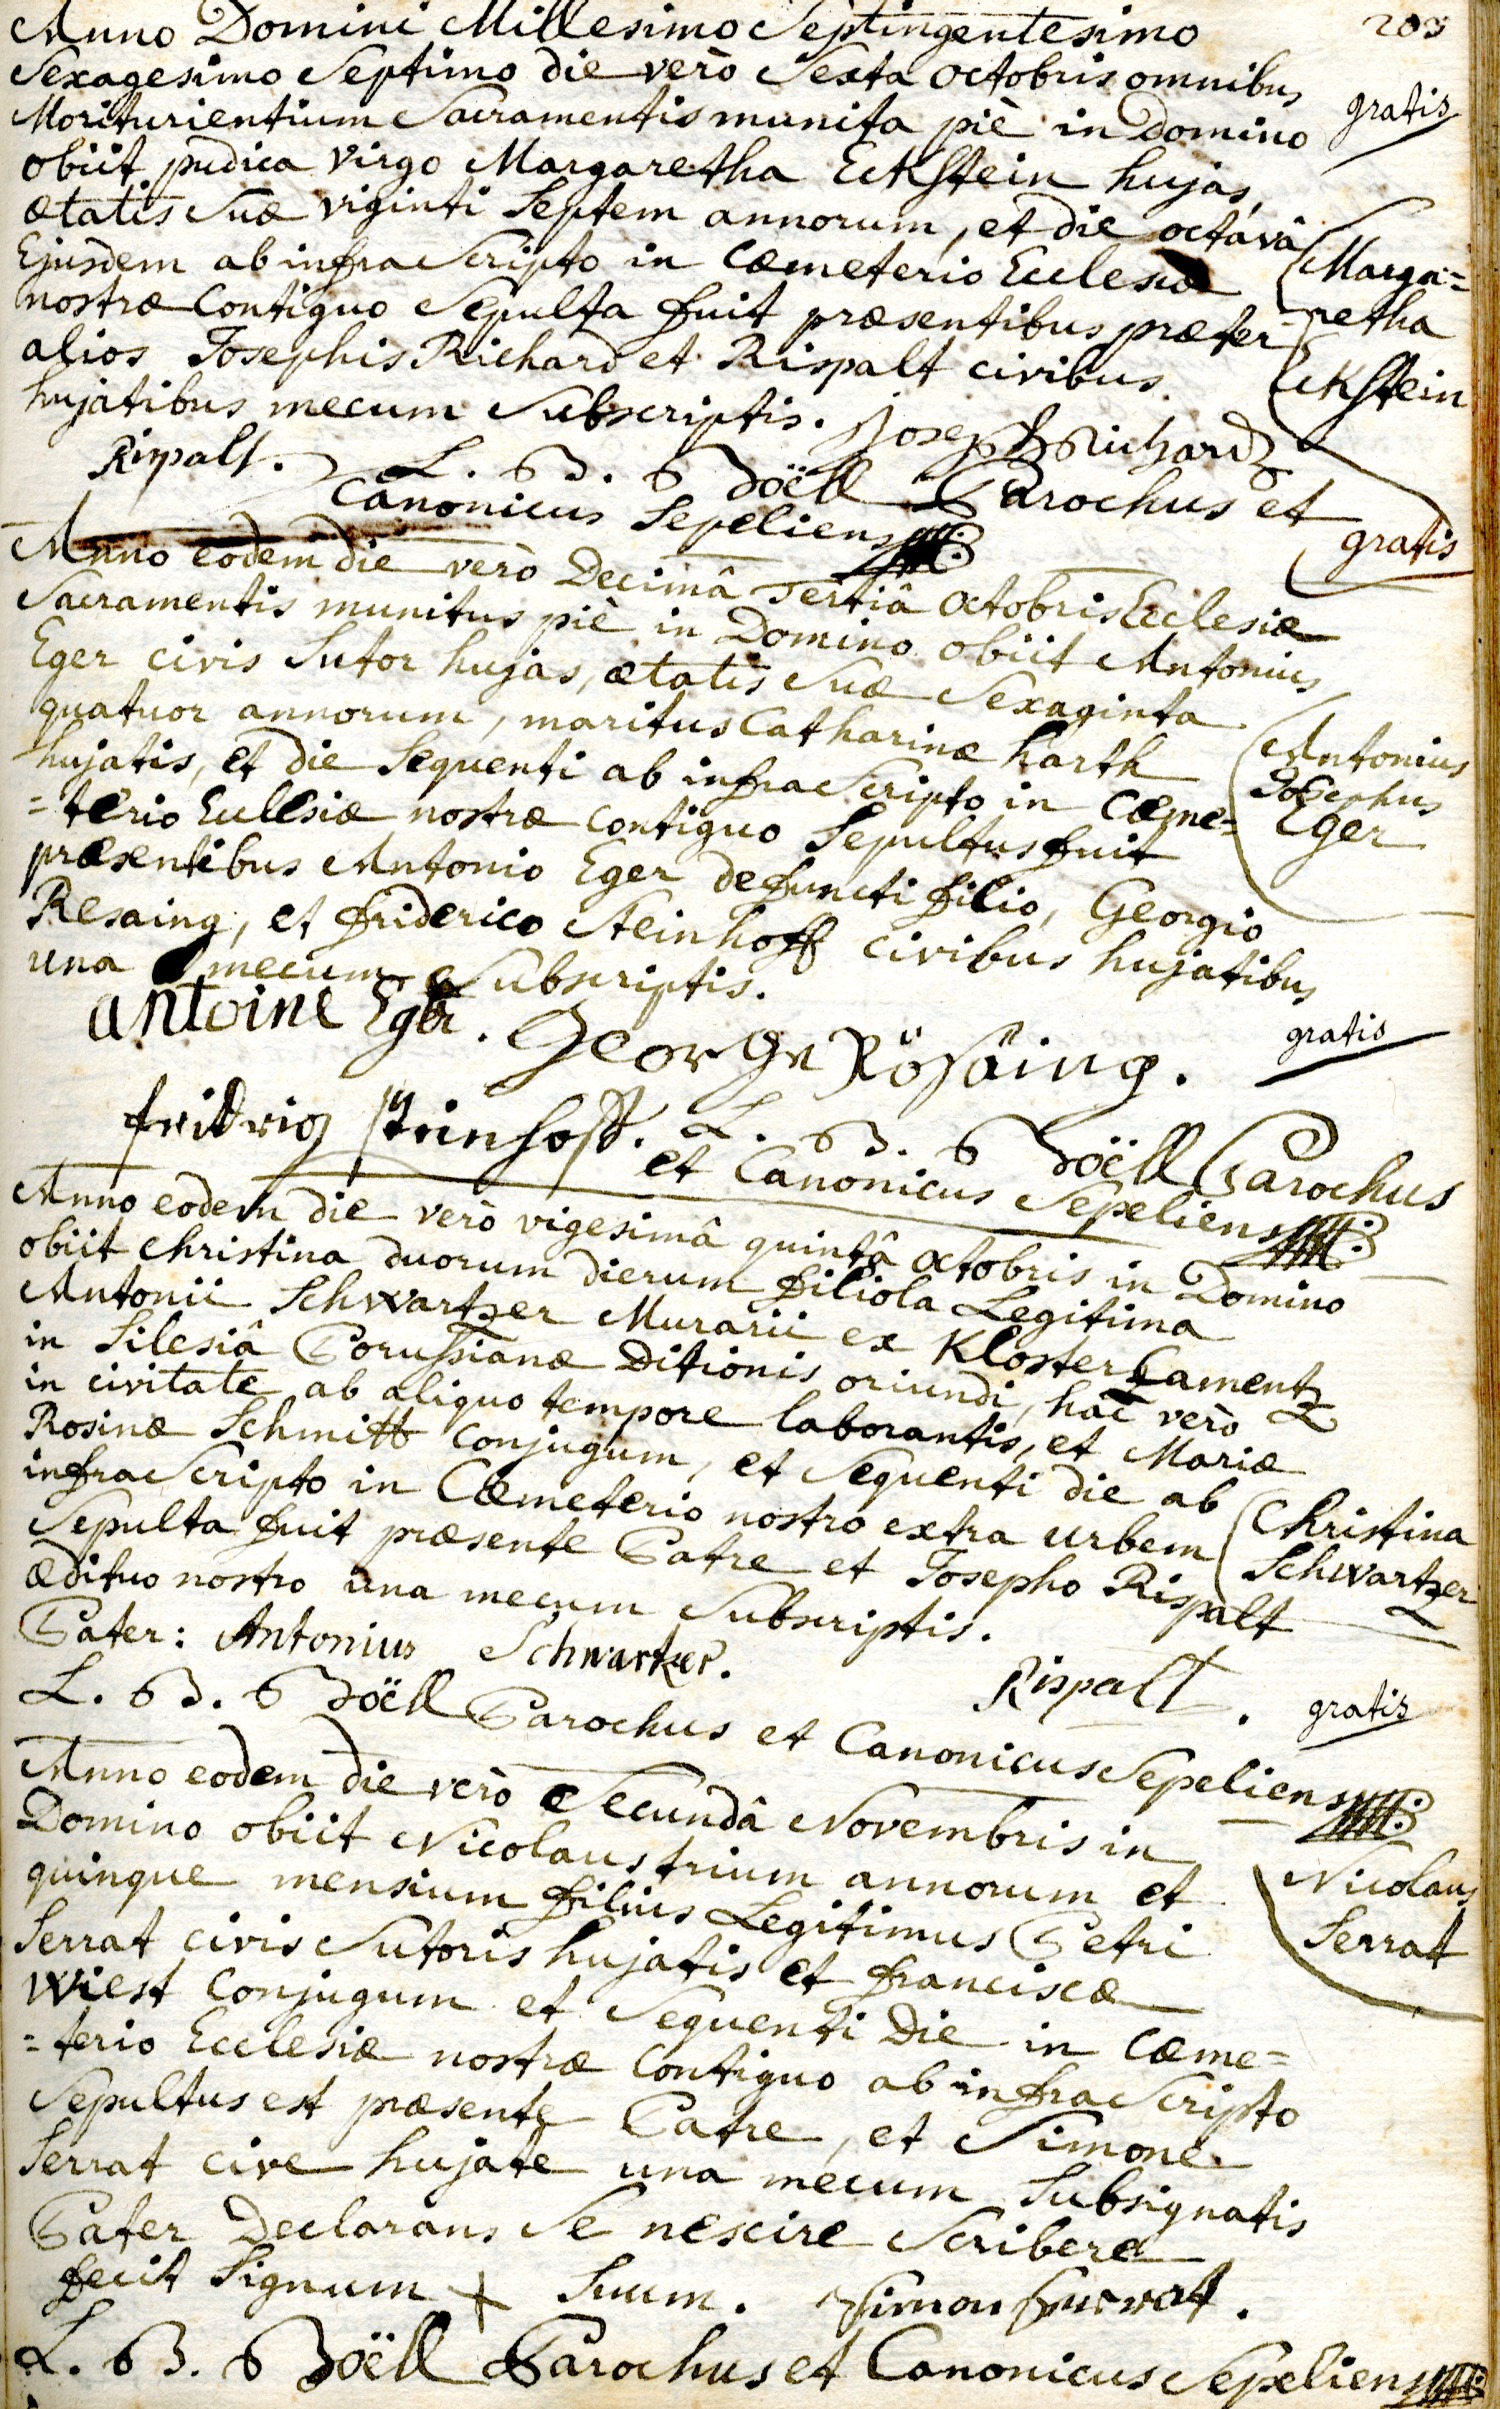 203
Anno Domini Millesimo Septingentesimo
Sexagesimo Septimo die verò Sexta octobris omnibus
Moriturientium Sacramentis munita piè in Domino
gratis
obiit pudica virgo Margaretha Eckstein hujas,
ætatis Suæ viginti Septem annorum, et die octavâ
Ejusdem ab infra Scripto in Cæmeterio Ecclesiæ
nostræ Contiguo Sepulta fuit præsentibus præter
alios Josephis Richard et Rispalt civibus
hujatibus mecum Subscriptis. Joseph Richard
Marga=
retha
Eckstein
Rispalt.
L. B. Boëll Parochus et
Canonicus Sepeliens
gratis
Anno eodem die verò Decimâ Tertiâ octobris Ecclesiæ
Sacramentis munitus piè in Domino obiit Antonius
Eger civis Sutor hujas, ætatis Suæ Sexaginta
quatuor annorum, maritus Catharinæ harth
hujatis, et die Sequenti ab infra Scripto in Cæme=
=terio Ecclesiæ nostræ Contiguo Sepultus fuit
præsentibus Antonio Eger defuncti filio, Georgio
Resaing, et friderico Steinhoff civibus hujatibus
una mecum Subscriptis.
Antonius
Josephus
Eger
antoine Eger. George Rösäing.
gratis
fridrig Steinhoff. L. B. Boëll Parochus
et Canonicus Sepeliens
Anno eodem die verò vigesimâ quintâ octobris in Domino
obiit Christina duorum dierum filiola Legitima
Antonii Schwartzer Murarii ex Kloster Camentz
in Silesiâ Porussianæ Ditionis oriundi, hac verò
in civitate ab aliquo tempore laborantis, et Mariæ
Rosinæ Schmitt Conjugum, et Sequenti die ab
infra Scripto in Cæmeterio nostro extra urbem
Sepulta fuit præsente Patre et Josepho Rispalt
ædituo nostro una mecum Subscriptis.
Christina
Schwartzer
Pater: Antonius Schwartzer.
Rispalt.
L. B. Boëll Parochus et Canonicus Sepeliens
gratis
Anno eodem die verò Secundâ Novembris in
Domino obiit Nicolaus trium annorum et
quinque mensium filius Legitimus Petri
Serrat civis Sutoris hujatis et franciscæ
Wiest Conjugum et Sequenti Die in Cæme=
=terio Ecclesiæ nostræ Contiguo ab infra Scripto
Sepultus est præsente Patre, et Simone
Serrat cive hujate una mecum Subsignatis
Nicolaus
Serrat
Pater Declarans Se nescire Scribere
fecit Signum + Suum. Simon Serrat.
L. B. Boëll Parochus et Canonicus Sepeliens